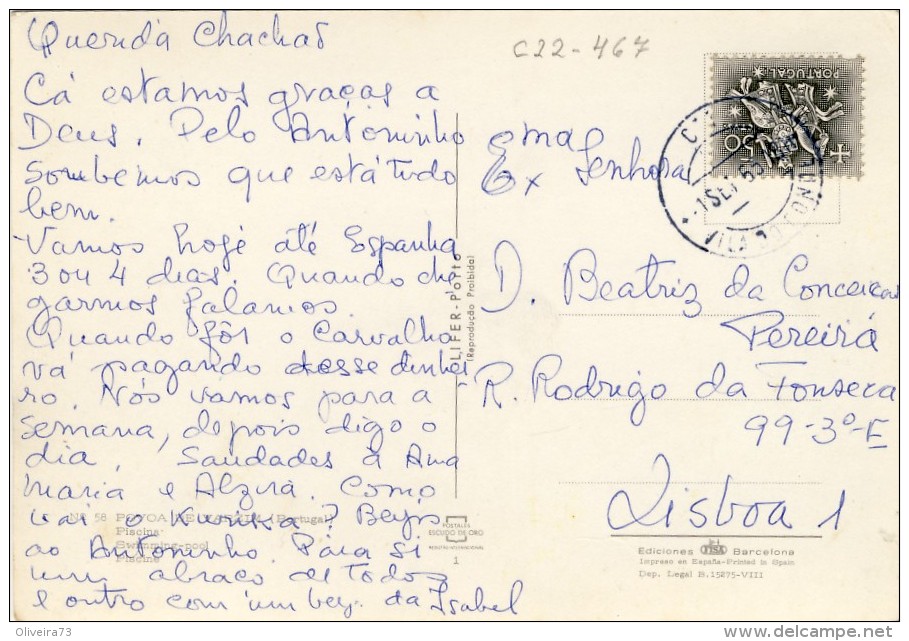 Querida Chachas
Cá estamos graças a
Deus. Pelo Antoninho
Soubemos que está tudo
bem.
Vamos hoje até Espanha
3 ou 4 dias. Quando che
garmos falamos.
Quando fôr o Carvalho
vá pagando desse dinhei
ro. Nós vamos para a
semana, depois digo o
dia. Saudades à Ana
Maria e Alzira. Como
vai o Kurika? Beijs
ao Antoninho. Para si
um abraço de todos
e outro com um beij. da Isabel
Nº 58 POVOA DE VARZIM (Portugal)
Piscina
Swimming-pool
Piscine
C22-467
LIFER-Porto
(Reprodução Proibida)
POSTALES
ESCUDO DE ORO
1
PORTUGAL
1 SET
VILA DO CONDE
Exma
Ex Senhora
D. Beatriz da Conceição
Pereira
R. Rodrigo da Fonseca
99-3º-E
Lisboa 1
Ediciones FISA Barcelona
Impreso en España-Printed in Spain
Dep. Legal B. 15275-VIII
© Oliveira73
www.delcampe.net